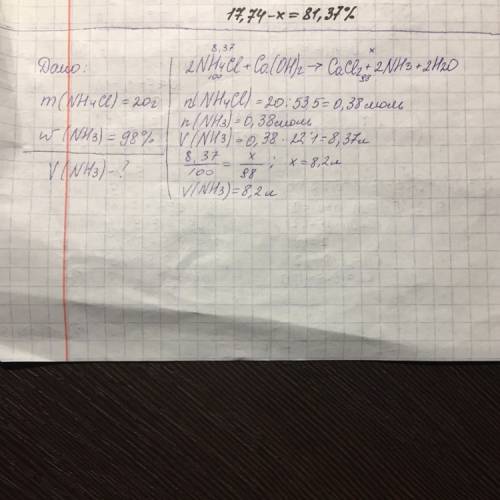 17,74-x=81,37%
Дано:
m(NH4Cl)=20г
w(NH3)=98%
V(NH3)-?
8,37 x
2NH4Cl+Ca(OH)2→CaCl2+2NH3+2H2O
100 98
n(NH4Cl)=20:535=0,38моль
n(NH3)=0,38моль
V(NH3)=0,38·22'1=8,37л
8,37/100=x/98; x=8,2л
V(NH3)=8,2л